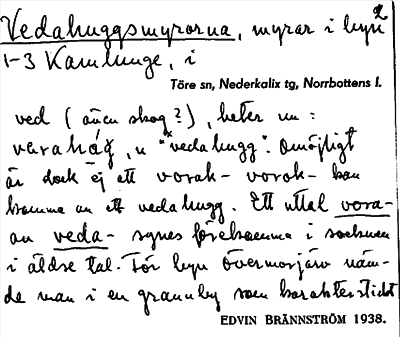 2
Vedahuggsmyrorna, myrar i byn
1-3 Kamlunge, i
Töre sn, Nederkalix tg, Norrbottens l.
ved (även skog?), heter nu:
varahág, u "vedahugg". Omöjligt
är dock ej att vorak- vorok- kan
komma av ett vedahugg. Ett uttal vora-
av veda- synes förekomma i socknen
i äldre tal. För byn Övermorjärv näm-
de man i en grannby som karakteristiskt
EDVIN BRÄNNSTRÖM 1938.